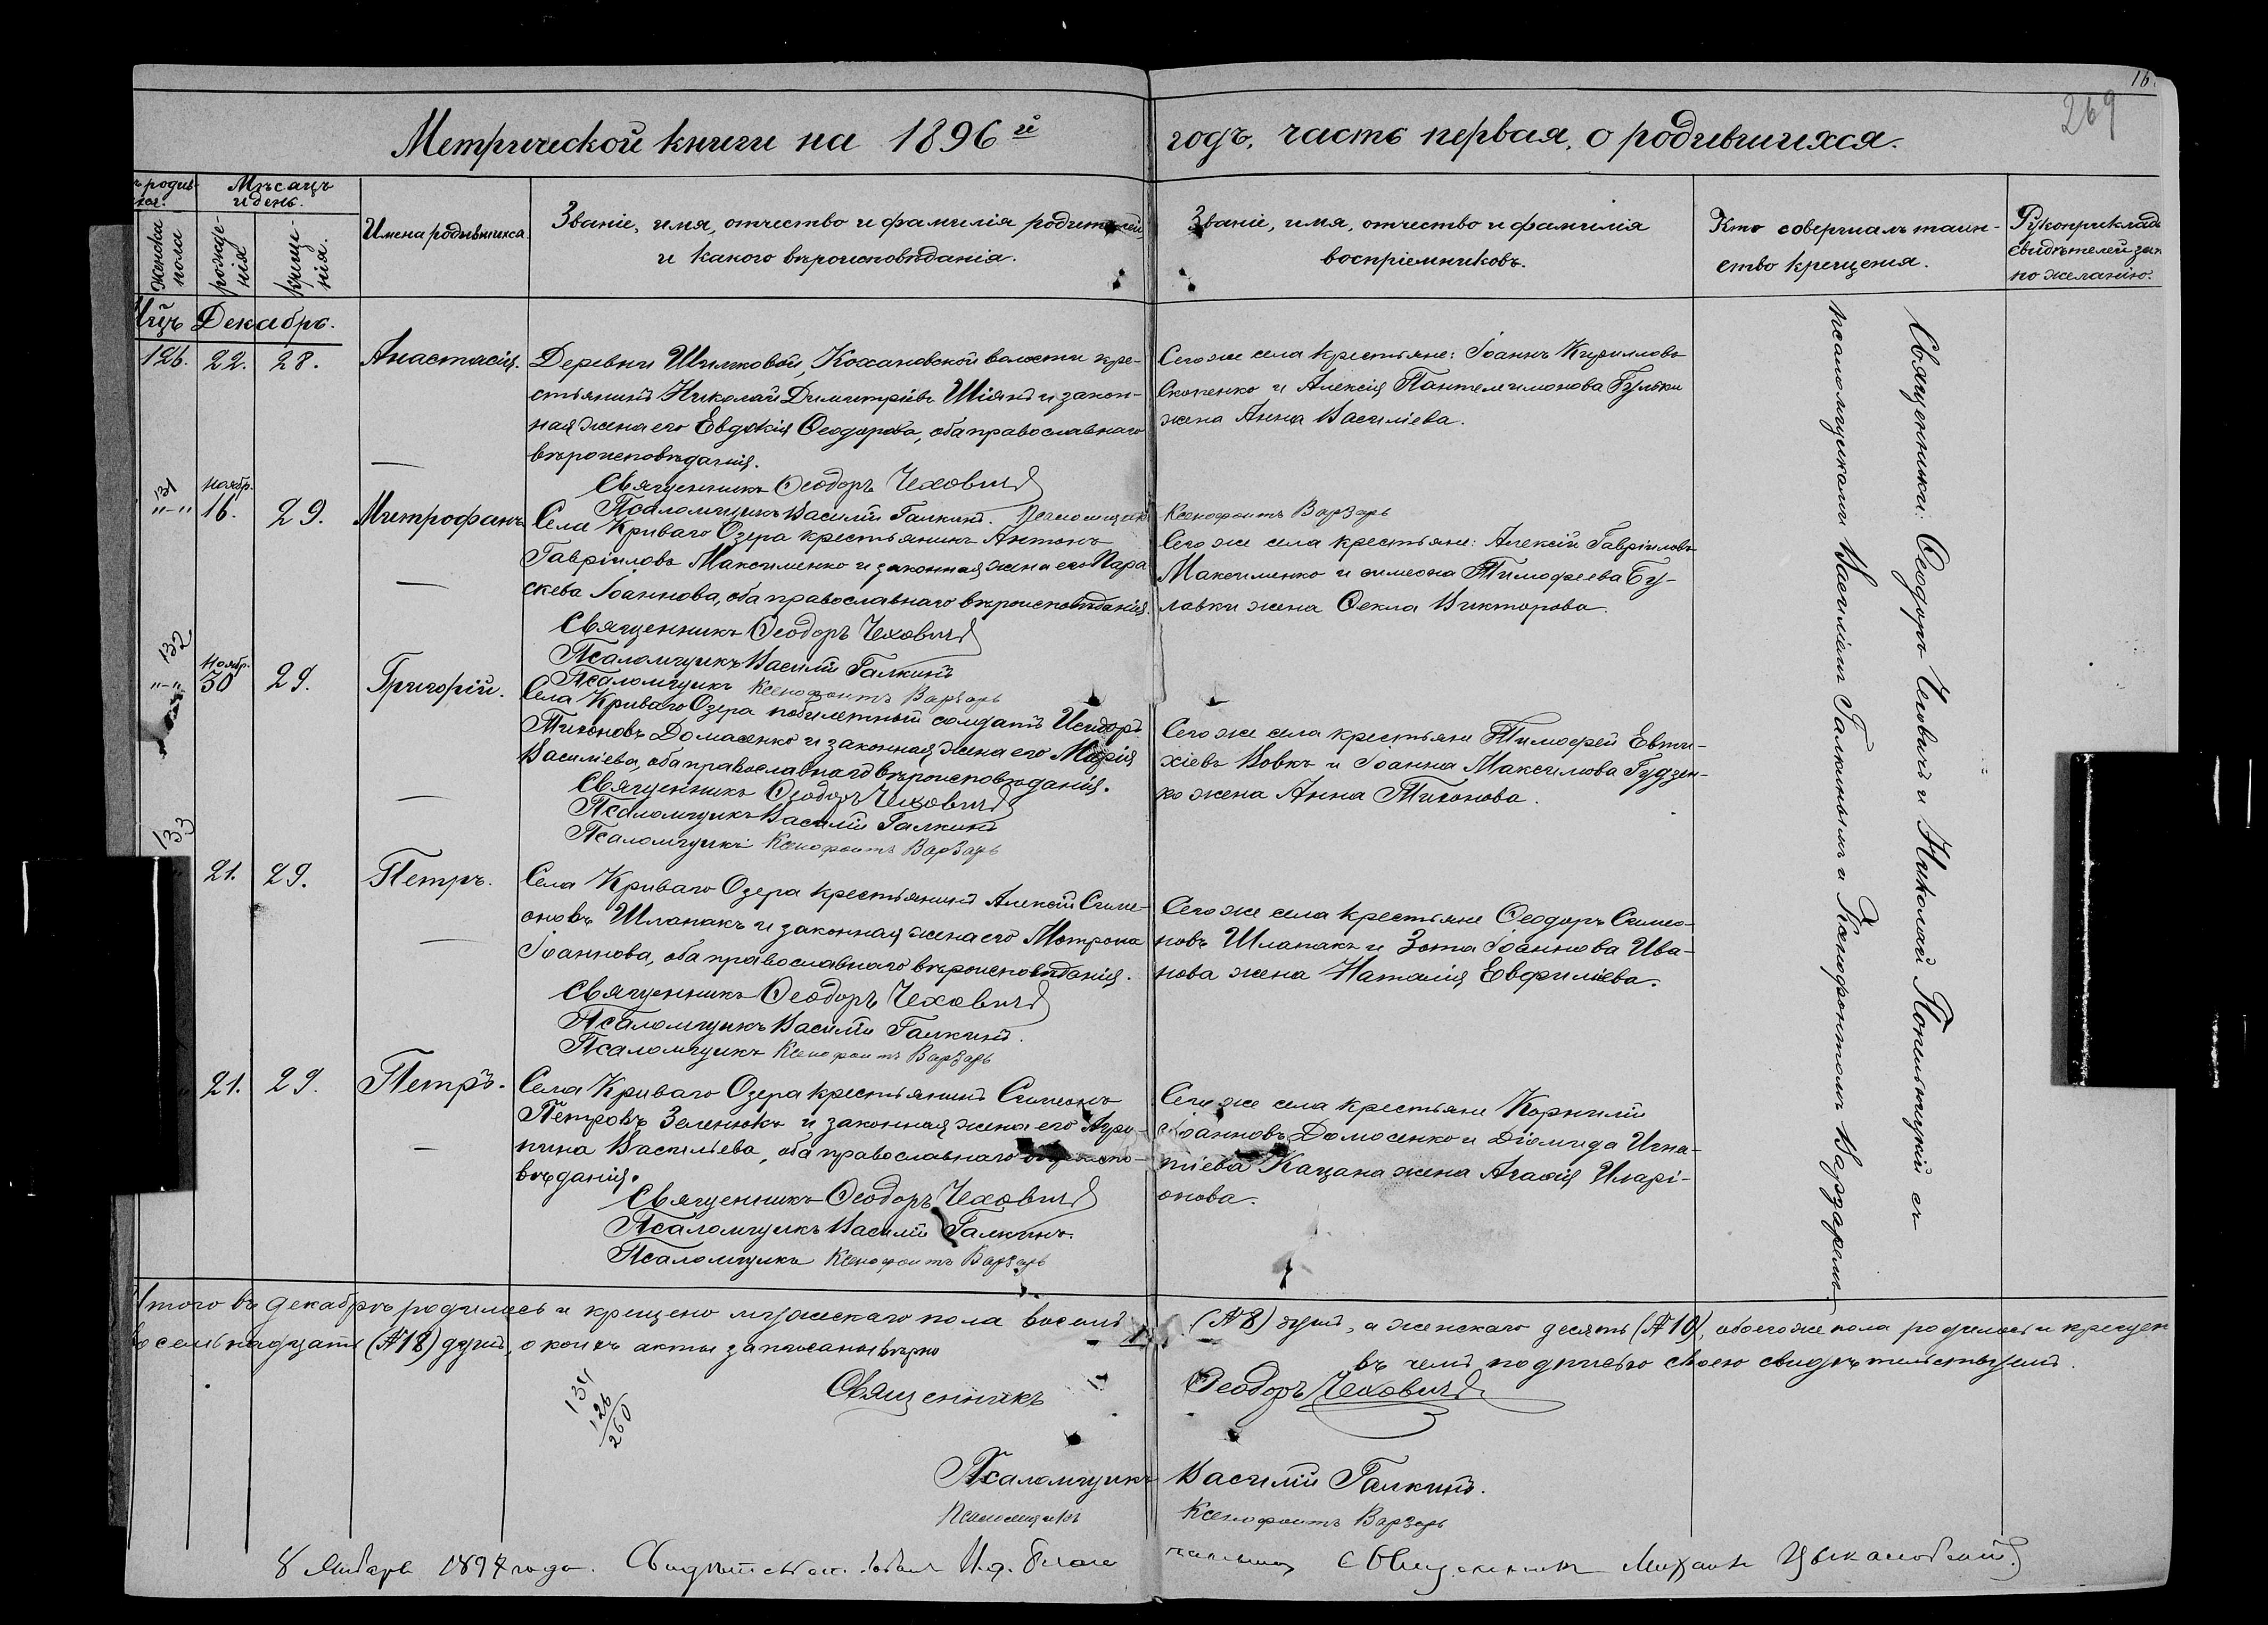 16.
269
Метрической книги на 1896й годъ, часть первая, о родившихся.
Мѣсяцъ и день.
женска пола
рожде-нія
креще-нія.
Имена родившихся.
Званіе, имя, отчество и фамилія родителей,
и какого вѣроисповѣданія.
Званіе, имя, отчество и фамилія
воспріемниковъ.
Кто совершалъ таин-
ство крещенія.
Рукоприклад
свидѣтелей зап
по желанію.
Мцъ Декабрь.
126. 22. 28. Анастасія.
Деревни Шилковой, Кохановской волости кре-
стьянинъ Николай Димитріевъ Шіянъ и закон-
ная жена его Евдокія Ѳеодорова, оба православнаго
вѣроисповѣданія.
Священникъ Ѳеодоръ Чеховичъ
Псаломщикъ Василій Галкинъ. Псаломщикъ Ксенофонтъ Варзарь
Сего же села крестьяне: Іоаннъ Кирилловъ
Скопенко и Алексія Пантелеимонова Гульки
жена Анна Василіева.
131 ноябр. 16. 29. Митрофанъ
Села Криваго Озера крестьянинъ Антонъ
Гавріиловъ Максименко и законная жена его Пара
скева Іоаннова, оба православнаго вѣроисповѣданія.
Священникъ Ѳеодоръ Чеховичъ
Псаломщикъ Василій Галкинъ
Псаломщикъ Ксенофонтъ Варзарь
Сего же села крестьяне: Алексій Гавріиловъ
Максименко и Симеона Тимофеева Бу-
лавки жена Ѳекла Викторова.
132 Ноябр. 30 29. Григорій.
Села Криваго Озера побилетный солдатъ Исидоръ
Тихоновъ Домасенко и законная жена его Марія
Василіева, оба православнаго вѣроисповѣданія.
Священникъ Ѳеодоръ Чеховичъ
Псаломщикъ Василій Галкинъ
Псаломщикъ Ксенофонтъ Варзарь
Сего же села крестьяне Тимофей Евти-
хіевъ Вовкъ и Іоанна Максимова Гудзен-
ко жена Анна Тихонова.
133 21. 29. Петръ.
Села Криваго Озера крестьянинъ Алексій Симе-
оновъ Шлапакъ и законная жена его Матрона
Іоаннова, оба православнаго вѣроисповѣданія.
Священникъ Ѳеодоръ Чеховичъ
Псаломщикъ Василій Галкинъ.
Псаломщикъ Ксенофонтъ Варзарь
Сего же села крестьяне Ѳеодоръ Симео-
новъ Шлапакъ и Зота Іоаннова Ива-
нова жена Наталія Евфиміева.
21. 29. Петръ.
Села Криваго Озера крестьянинъ Симеонъ
Петровъ Зеленюкъ и законная жена его Агри-
пина Василіева, оба православнаго вѣроиспо-
вѣданія.
Священникъ Ѳеодоръ Чеховичъ
Псаломщикъ Василій Галкинъ.
Псаломщикъ Ксенофонтъ Варзарь
Сего же села крестьяне Корнилій
Іоанновъ Домосенко и Діомида Игна-
тіева Кацана жена Агаѳія Иларі-
онова.
Священники: Ѳеодоръ Чеховичъ и Николай съ
псаломщиками Василіемъ Галкинымъ и Ксенофонтомъ Варзаремъ.
Итого въ декабрѣ родилось и крещено мужескаго пола восемь (№ 8) душъ, а женскаго десять (№ 10), обоего же пола родилось и крещен
восемьнадцать (№ 18) душъ, о коихъ акты записаны вѣрно
въ чемъ подписью своею свидѣтельствуемъ.
134
126
260
Священникъ Ѳеодоръ Чеховичъ
Псаломщикъ Василій Галкинъ.
Псаломщикъ Ксенофонтъ Варзарь
8 Января 1897 года. И. д. Благо чиннаго Священникъ Михаилъ